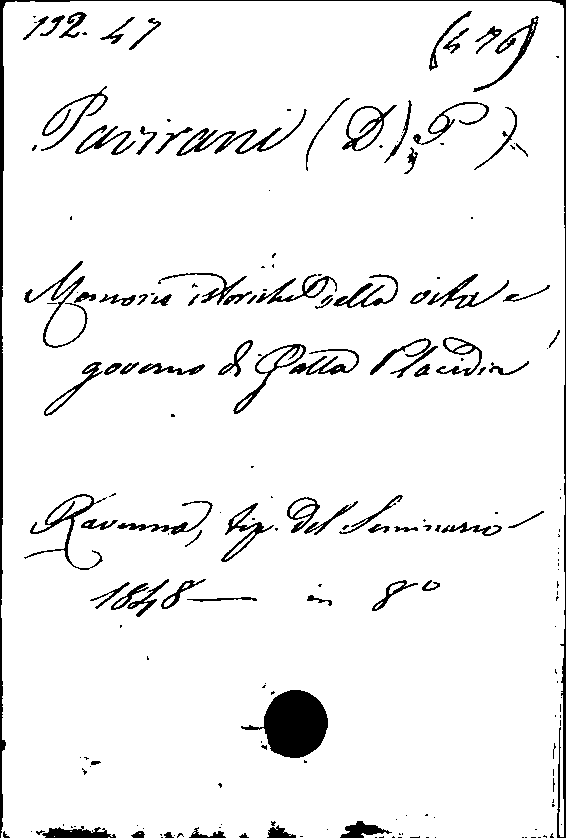 192. 47 (476)
Pavirani (D.) P.)
Memorie istoriche della vita e
governo di Galla Placidia
Ravenna, tip. del Seminario
1848 — in 8º